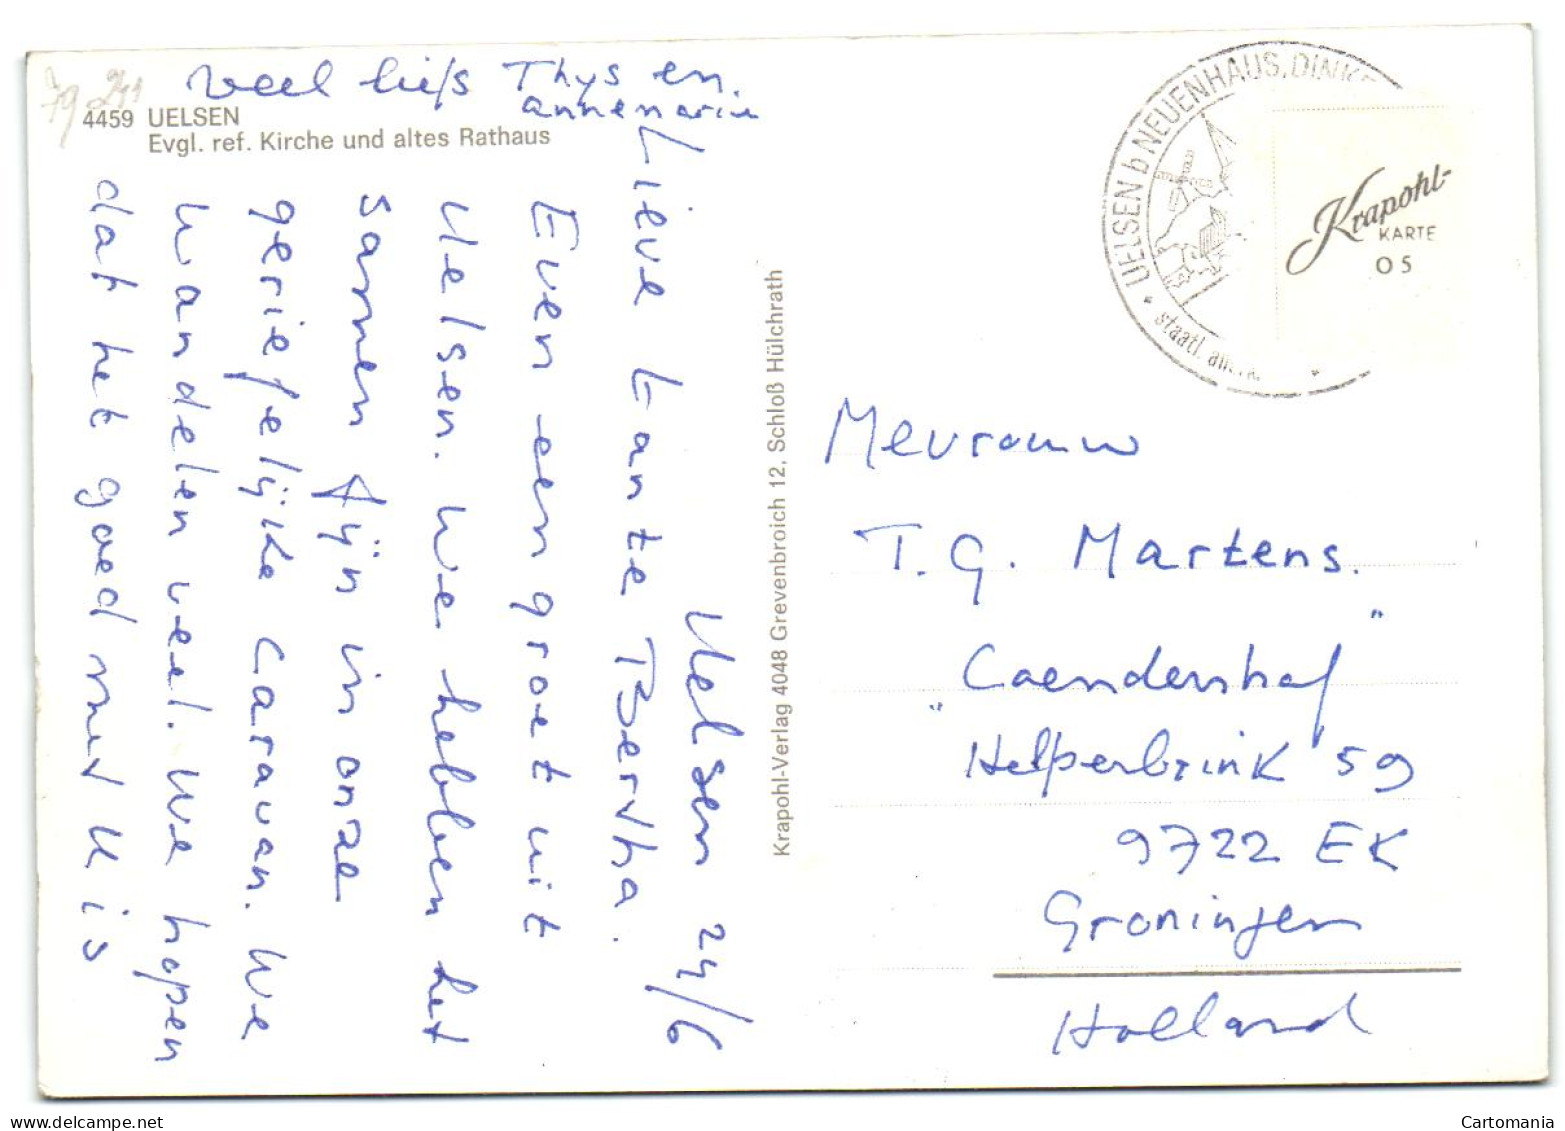 veel liefs Thys en
annemarie
79 211
4459 UELSEN
Evgl. ref. Kirche und altes Rathaus
Uelsen 24/6
Lieve tante Bertha.
Even een groet uit
Uelsen. We hebben het
samen fijn in onze
geriefelijke caravan. We
wandelen veel. We hopen
dat het goed met U is
Krapohl-Verlag 4048 Grevenbroich 12, Schloß Hülchrath
UELSEN b NEUENHAUS, DINK
staatl. an
Krapohl-
KARTE
05
Mevrouw
T. G. Martens.
"Coendershof"
Helperbrink 59
9722 EK
Groningen
Holland
www.delcampe.net
Cartomania